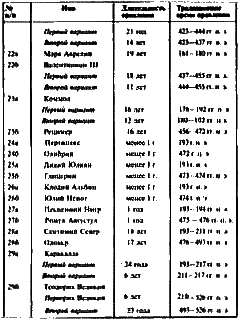 № п/п Имя Длительность правления Традиционное время правления
Первый вариант 21 год 423—444 гг. н. э.
Второй вариант 14 лет 423—437 гг. н. э.
22а Марк Аврелий 19 лет 161—180 гг. н. э.
22б Валентиниан III
Первый вариант 18 лет 437—455 гг. н. э.
Второй вариант 11 лет 444—455 гг. н. э.
23а Коммод
Первый вариант 16 лет 176—192 гг. н. э.
Второй вариант 12 лет 180—192 гг. н. э.
23б Рицимер 16 лет 456—472 гг. н. э.
24а Пертинакс менее 1 г. 193 г. н. э.
24б Олибрий менее 1 г. 472 г. н. э.
25а Дидий Юлиан менее 1 г. 193 г. н. э.
25б Глицерий менее 1 г. 473—474 гг. н. э.
26а Клодий Альбин менее 1 г. 193 г. н. э.
26б Юлий Непот менее 1 г. 474 г. н. э.
27а Песценний Нигер 1 год 193—194 гг. н. э.
27б Ромул Августул 1 год 475—476 гг. н. э.
28а Септимий Север 18 лет 193—211 гг. н. э.
28б Одоакр 17 лет 476—493 гг. н. э.
29а Каракалла
Первый вариант 24 года 193—217 гг. н. э.
Второй вариант 6 лет 211—217 гг. н. э.
29б Теодорих Великий
Первый вариант
Второй вариант 493—526 гг. н. э.